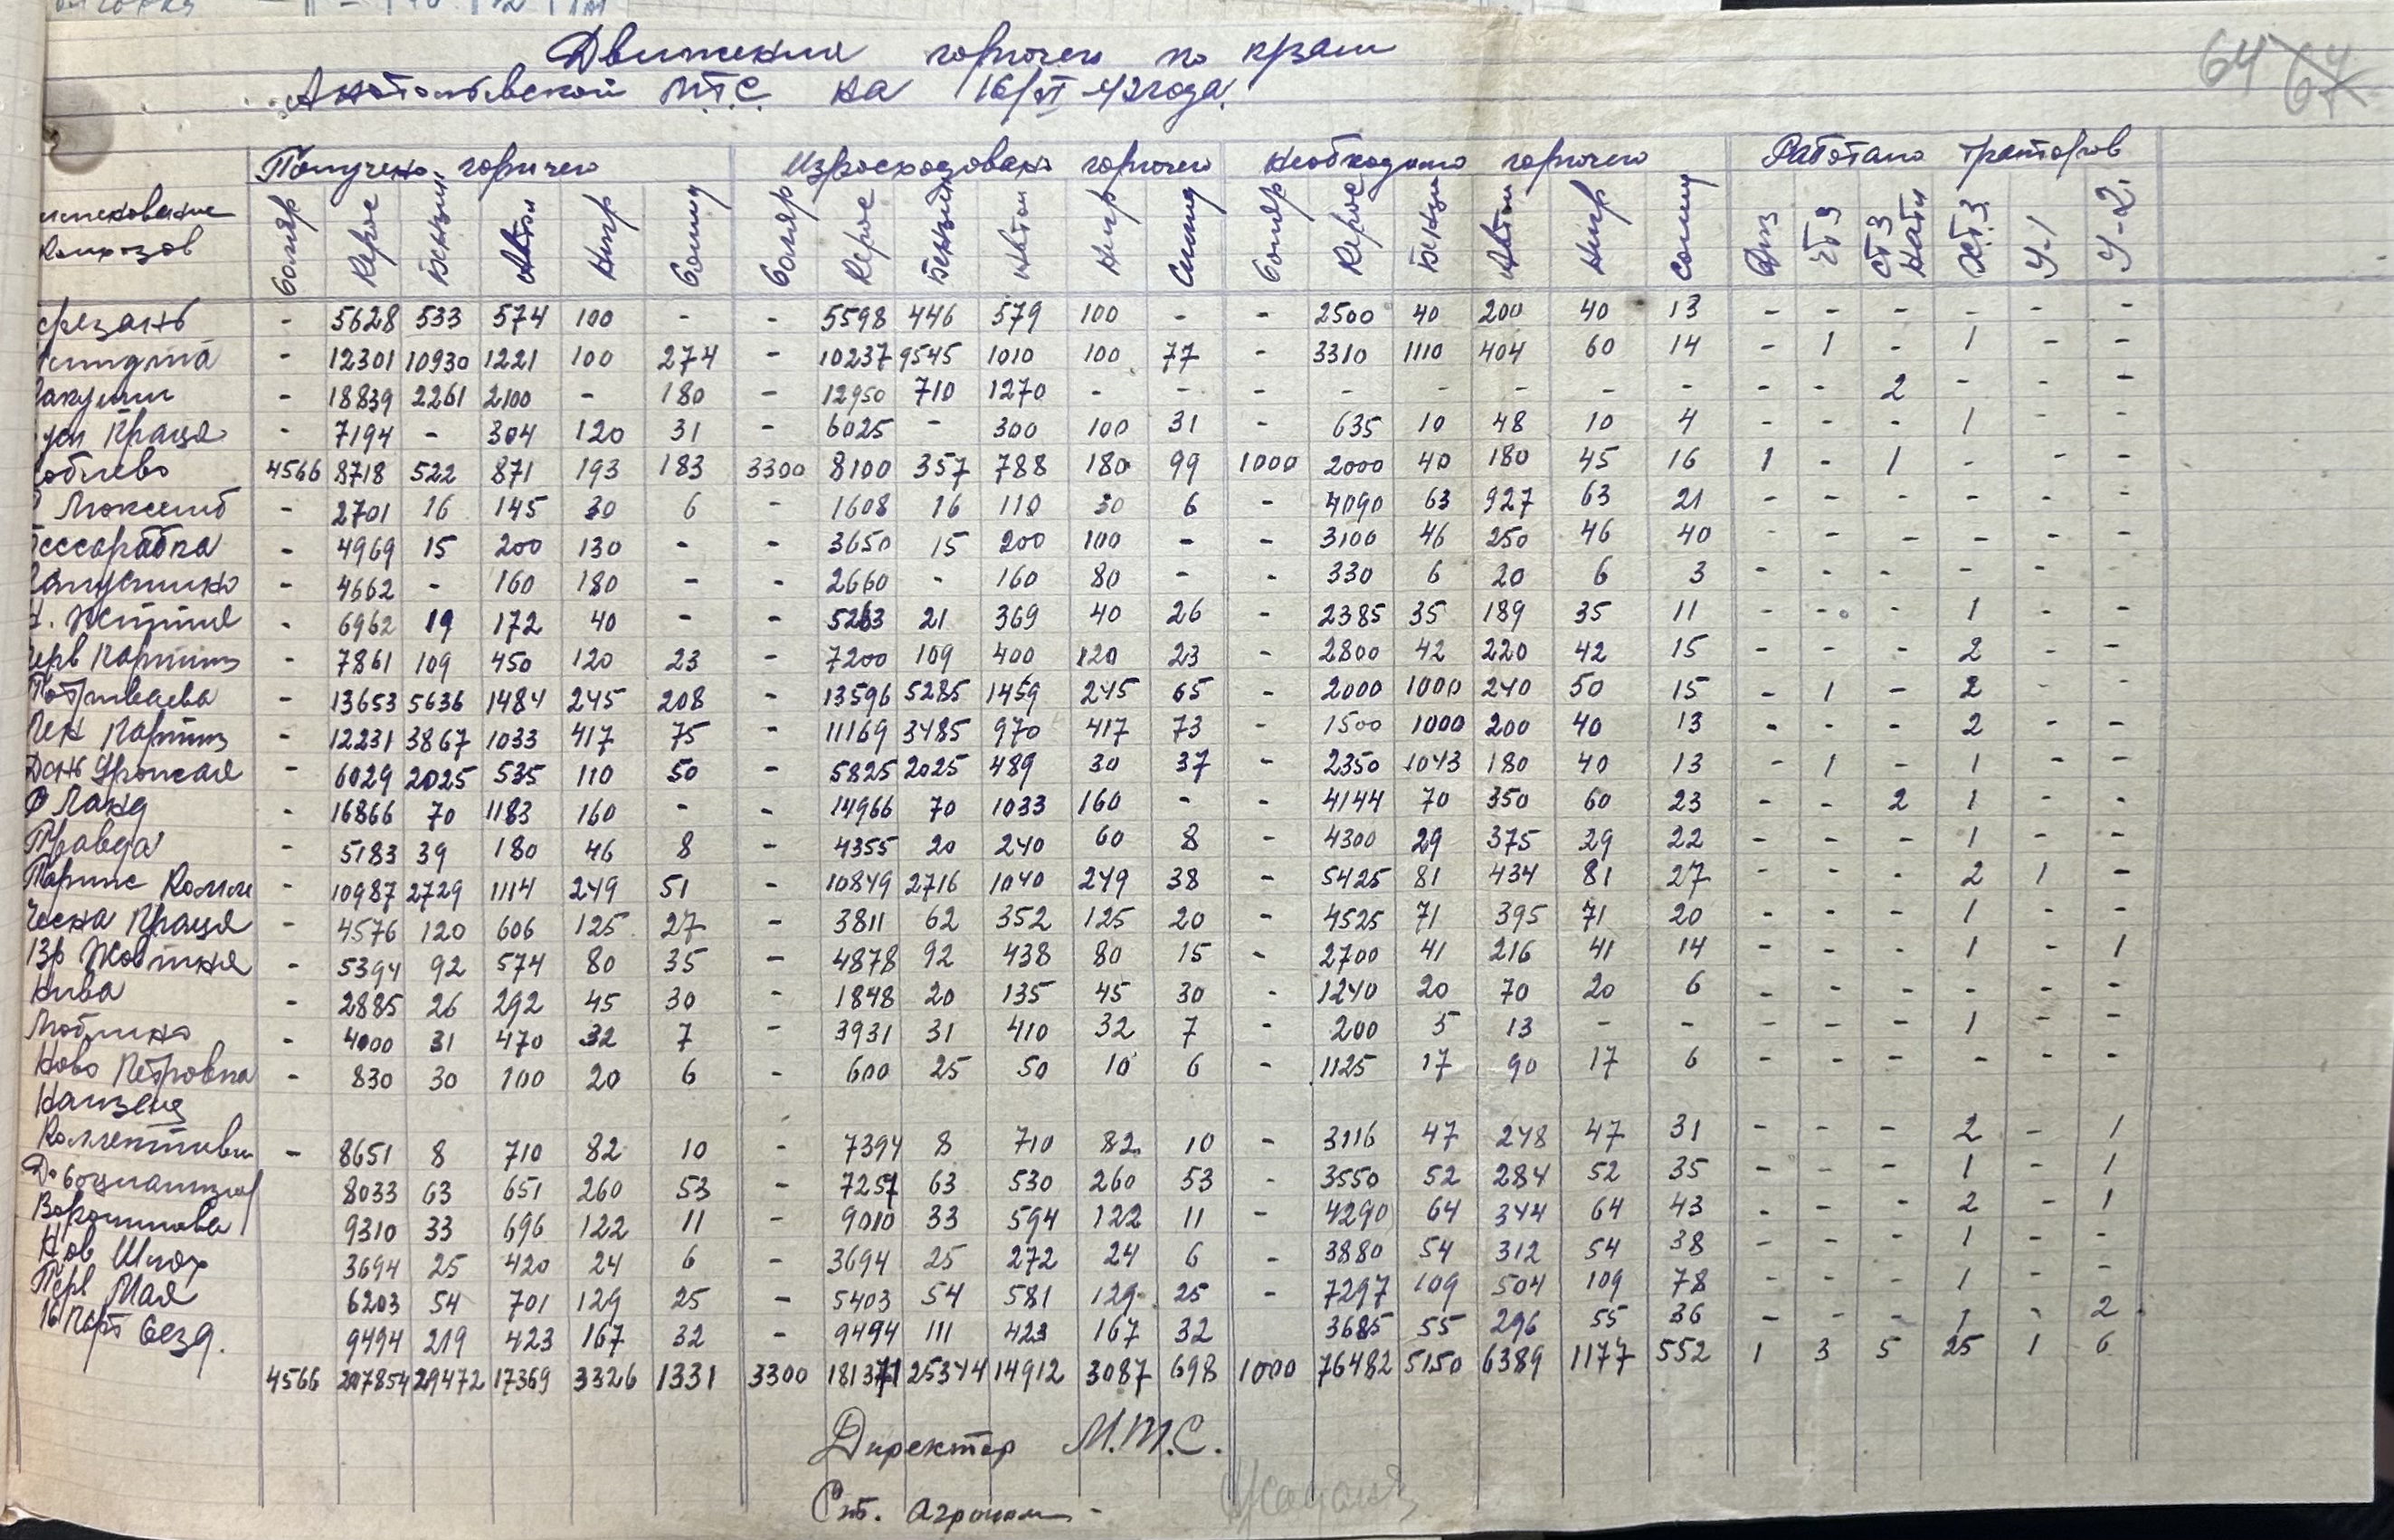 64 64
Движения горючего по краю
Анатольевской М.Т.С. на 16/VI-42 года.
Получено горючего Израсходовано горючего Необходимо горючего Работало тракторов
Колхозов Соляр Керос Бензин Автол Нигр Солид Соляр Керос Бензин Автол Нигр Солид Соляр Керос Бензин Автол Нигр Солид Диз ЧТЗ СТЗ Нати ХТЗ У-1 У-2.
- 5628 533 574 100 - - 5598 446 579 100 - - 2500 40 200 40 13 - - - - - -
- 12301 10930 1221 100 274 - 10237 9545 1010 100 77 - 3310 1110 404 60 14 - 1 - 1 - -
- 18839 2261 2100 - 180 - 12950 710 1270 - - - - - - - - - - 2 - - -
Праця - 7194 - 304 120 31 - 6025 - 300 100 31 - 635 10 48 10 4 - - - 1 - -
4566 8718 522 871 193 183 3300 8100 357 788 180 99 1000 2000 40 180 45 16 1 - 1 - - -
Люксемб - 2701 16 145 30 6 - 1608 16 110 30 6 - 4090 63 927 63 21 - - - - - -
Бессарабка - 4969 15 200 130 - - 3650 15 200 100 - - 3100 46 250 46 40 - - - - - -
- 4662 - 160 180 - - 2660 - 160 80 - - 330 6 20 6 3 - - - - - -
Життя - 6962 19 172 40 - - 5263 21 369 40 26 - 2385 35 189 35 11 - - - 1 - -
Партиз - 7861 109 450 120 23 - 7200 109 400 120 23 - 2800 42 220 42 15 - - - 2 - -
- 13653 5636 1484 245 208 - 13596 5285 1459 245 65 - 2000 1000 240 50 15 - 1 - 2 - -
Партиз - 12231 3867 1033 417 75 - 11169 3485 970 417 73 - 1500 1000 200 40 13 - - - 2 - -
День Урожая - 6029 2025 535 110 50 - 5825 2025 489 30 37 - 2350 1043 180 40 13 - 1 - 1 - -
Ланд - 16866 70 1183 160 - - 14966 70 1033 160 - - 4144 70 350 60 23 - - 2 1 - -
Правда - 5183 39 180 46 8 - 4355 20 240 60 8 - 4300 29 375 29 22 - - - 1 - -
Париж Комм - 10987 2729 1114 249 51 - 10849 2716 1040 249 38 - 5425 81 434 81 27 - - - 2 1 -
Чесна Праця - 4576 120 606 125 27 - 3811 62 352 125 20 - 4525 71 395 71 20 - - - 1 - -
13р Жовтня - 5394 92 574 80 35 - 4878 92 438 80 15 - 2700 41 216 41 14 - - - 1 - 1
Нива - 2885 26 292 45 30 - 1848 20 135 45 30 - 1240 20 70 20 6 - - - - - -
- 4000 31 470 32 7 - 3931 31 410 32 7 - 200 5 13 - - - - - 1 - -
Ново Петровка - 830 30 100 20 6 - 600 25 50 10 6 - 1125 17 90 17 6 - - - - - -
Найзенд
- 8651 8 710 82 10 - 7394 8 710 82 10 - 3116 47 248 47 31 - - - 2 - 1
8033 63 651 260 53 - 7257 63 530 260 53 - 3550 52 284 52 35 - - - 1 - 1
Ворошилова 9310 33 696 122 11 - 9010 33 594 122 11 - 4290 64 344 64 43 - - - 2 - 1
Нов Шлях 3694 25 420 24 6 - 3694 25 272 24 6 - 3880 54 312 54 38 - - - 1 - -
Перв Мая 6203 54 701 129 25 - 5403 54 581 129 25 - 7297 109 504 109 78 - - - 1 - -
16 Парт Сезд. 9494 219 423 167 32 - 9494 111 423 167 32 3685 55 296 55 36 - - - 1 - 2
4566 207854 29472 17369 3326 1331 3300 181371 25344 14912 3087 698 1000 76482 5150 6389 1177 552 1 3 5 25 1 6
Директор М.Т.С.
Ст. Агроном -